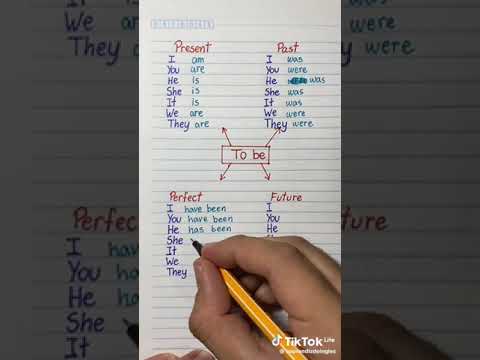 Present
I am
You are
He is
She is
It is
We are
They are
Past
I was
You were
He was
She was
It was
We were
They were
To be
Perfect
I have been
You have been
He has been
She
It
We
They
Future
I
You
He
Perfect
I
You
He
She
It
TikTok
Life